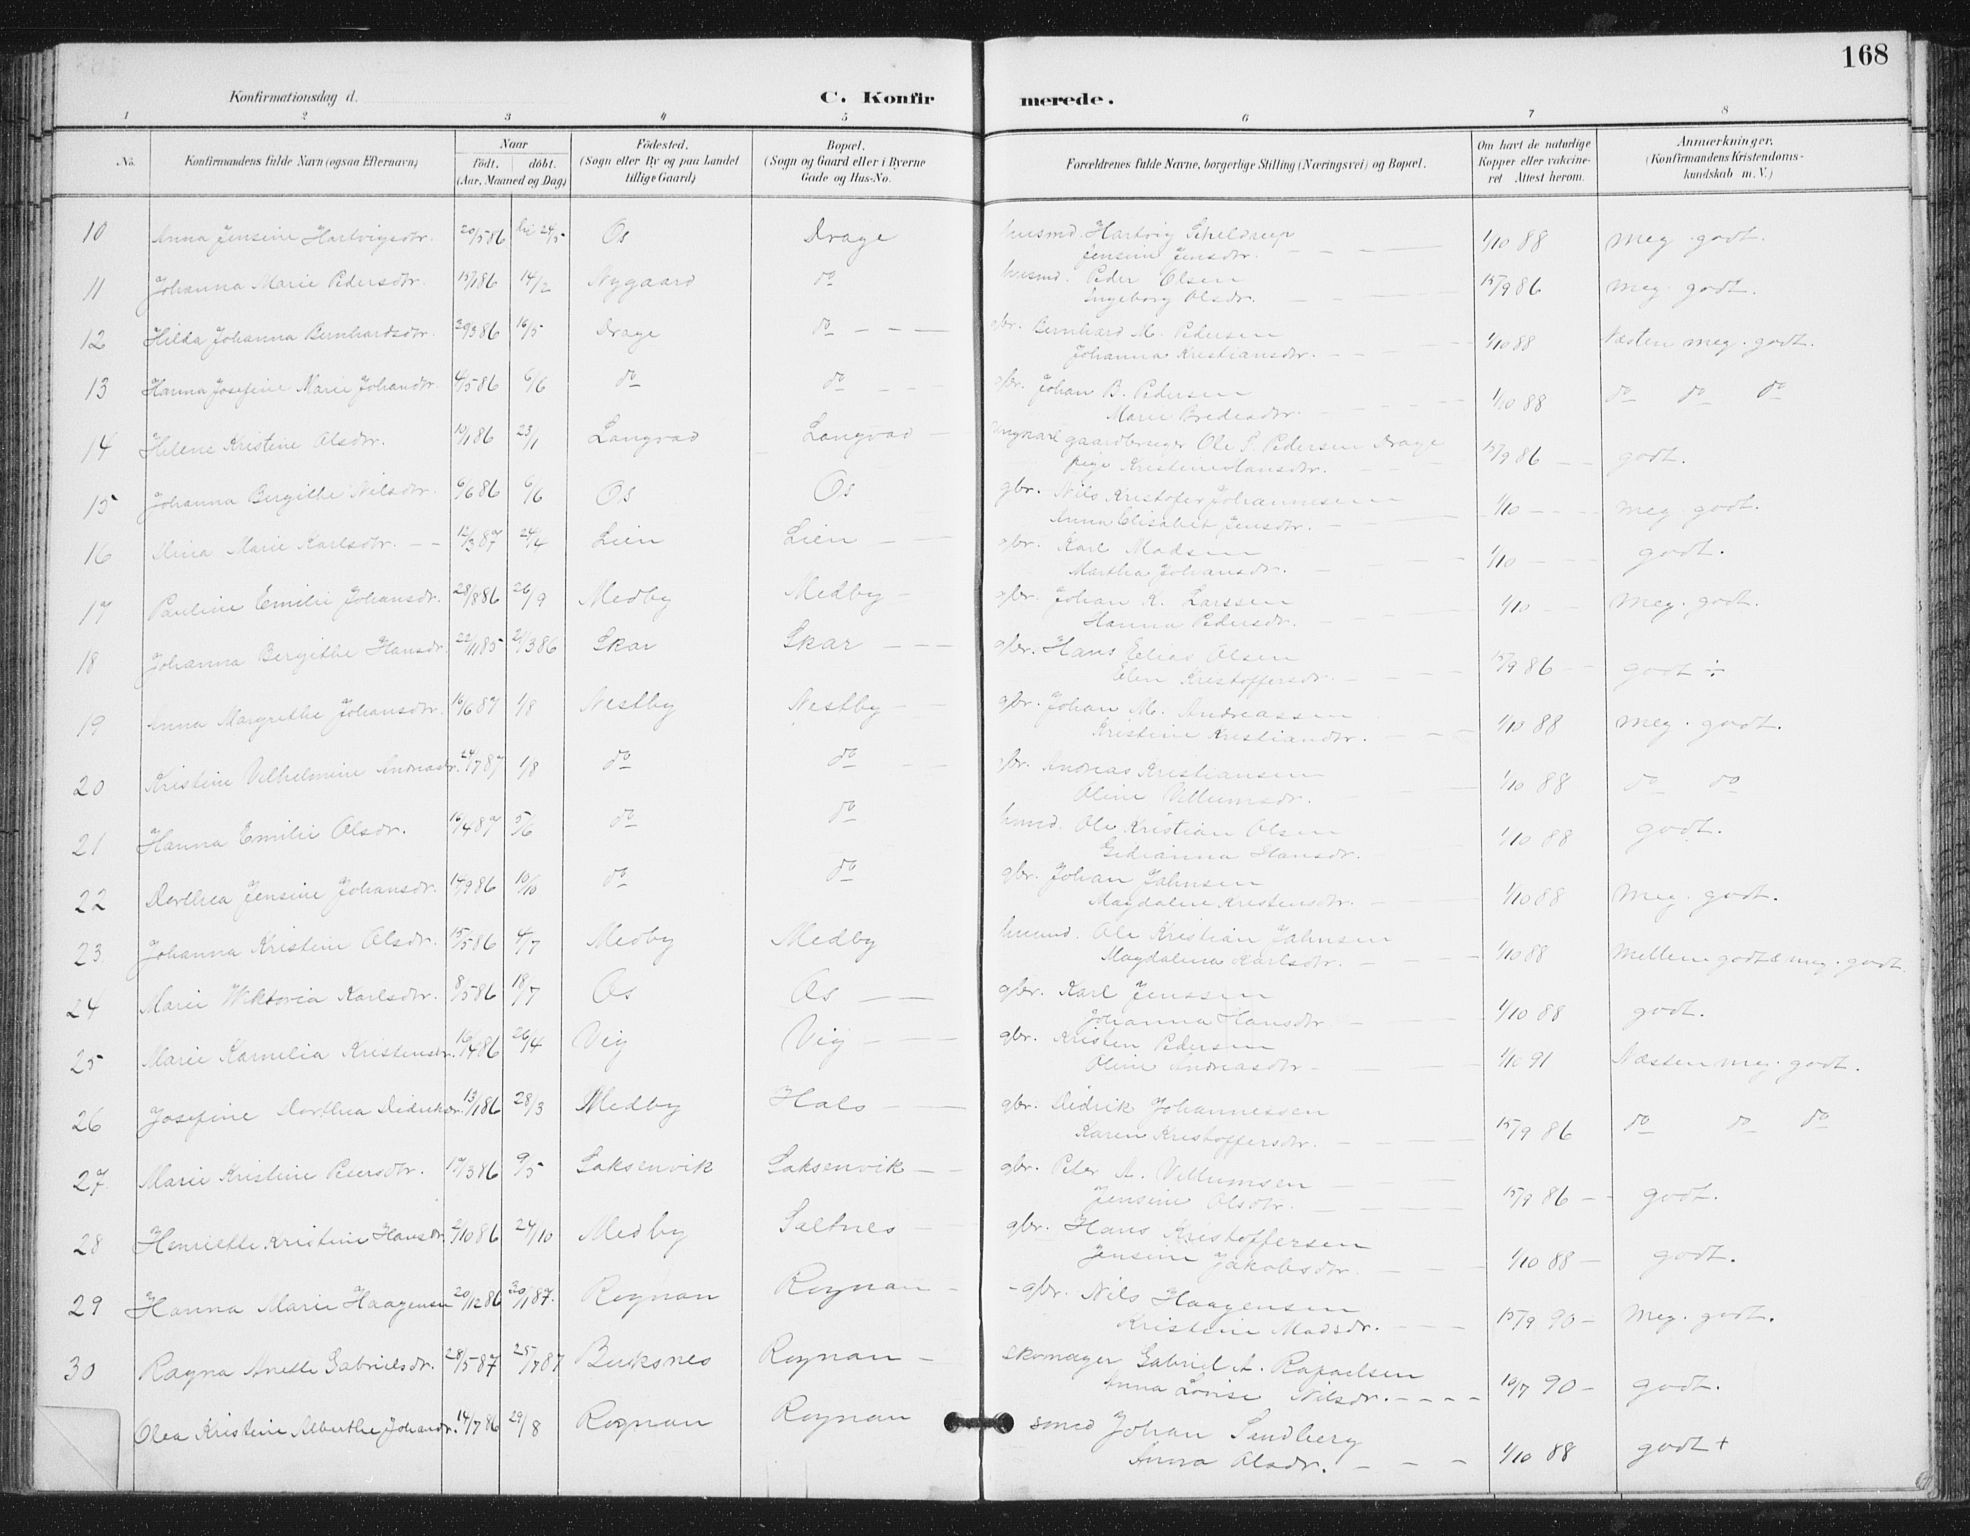 168
Konfirmationsdag d.
C. Konfirmerede.
1 2 3 4 5 6 7 8
No. Konfirmandens fulde Navn (ogsaa Efternavn) Naar født. døbt. (Aar, Maaned og Dag) Fødested. (Sogn eller By og paa Landet tillige Gaard) Bopæl. (Sogn og Gaard eller i Byerne Gade og Hus-No. Forældrenes fulde Navne, borgerlige Stilling (Næringsvei) og Bopæl. Om havt de naturlige Kopper eller vakcineret Attest herom. Anmærkninger. (Konfirmandens Kristendomskundskab m. V.)
10 Anna Jensine Hartvigsdtr. 20/5 86 24/5 Os Drage husmd. Hartvig Scheldrup 1/10 88 meg. godt.
Jensine Jensdtr.
11 Johanna Marie Pedersdtr. 14/2 Nygaard do husmd. Peder Olsen 15/9 86 meg. godt.
Ingeborg Olsdr.
12 Hilda Johanna Bernhardsdtr. 16/5 Drage do gbr. Bernhard M. Pedersen 1/10 88 Næsten meg. godt.
Johanna Kristiansdr.
13 Hanna Josefine Marie Johandtr. 4/5 86 6/6 do do gbr. Johan B. Pedersen 1/10 88 do do do
Marie Bredesdtr.
14 Helene Kristine Olsdtr. 19/1 86 23/1 Langvad Langvad ungkarl gaardbruger Ole P. Pedersen Drage 15/9 86 godt.
pige Kristine Hansdtr.
15 Johanna Bergithe Nilsdtr. 6/6 86 6/6 Os Os gbr. Nils Kristofer Johannesen 1/10 meg. godt.
Anna Elisabet Jensdtr.
16 Marie Karlsdtr. 12/3 87 24/4 Lien Lien gbr. Karl Madsen 1/10 godt.
Martha Johansdr.
17 Pauline Emilie Johansdr. 28/8 86 26/9 Medby Medby gbr. Johan K. Larssen 1/10 meg. godt.
Hanna Pedersdr.
18 Johanna Bergithe Hansdr. 22/11 85 21/3 86 Skar Skar gbr. Hans Elias Olsen 15/9 86 godt ÷
Elen Kristoffersdr.
19 Anna Margrethe Johansdtr. 16/6 87 1/8 Nestby Nestby gbr. Johan M. Andreassen 1/10 88 meg. godt.
Kristine Kristiandtr.
20 Kristine Vilhelmine Andreasdr. 24/7 87 1/8 do do gbr. Andreas Kristiansen 1/10 88 do do
Oline Villumsdr.
21 Hanna Emilie Olsdr. 16/4 87 5/6 do do husmd. Ole Kristian Olsen 1/10 88 godt.
Gidianna Hansdr.
22 Dorthea Jensine Johansdr. 14/9 86 10/10 do do gbr. Johan Jahnsen 1/10 88 meg. godt.
Magdalene Kristensdtr.
23 Johanna Kristine Olsdr. 15/5 86 4/7 Medby Medby husmd. Ole Kristian Jahnsen 1/10 88 Mellem godt & meg. godt
Magdalena Karlsdtr.
24 Marie Wiktoria Karlsdtr. 8/5 86 18/7 Os Os gbr. Karl Jenssen 1/10 88 godt.
Johanna Hansdtr
25 Marie Kornelia Kristensdtr. 16/4 86 26/4 Vig Vig gbr. Kristen Pedersen 1/10 91 Næsten meg. godt.
Oline Andreasdtr
26 Josefine Dorthea Didriksdr. 13/1 86 28/3 Medby Hals gbr. Didrik Johannessen 15/9 86 do do do
Karen Kristoffersdtr.
27. Marie Kristine Peersdtr. 17/3 86 9/5 Saksenvik Saksenvik gbr. Peter A. Villumsen 15/9 86 godt.
Jensine Olsdtr.
28 Henriette Kristine Hansdr. 2/10 86 24/10 Medby Saltnes gbr. Hans Kristoffersen 1/10 88 godt.
Jensine Jakobsdtr.
29 Hanna Marie Haagensen 20/12 86 30/1 87. Rognan Rognan gbr. Nils Haagensen 15/9 90 meg. godt.
Kristine Madsdr.
30 Ragna Anette Gabrielsdr. 28/5 87 25/7 87 Buksnes Rognan skomager Gabriel A. Rapaelsen 10/7 90 godt.
Anna Lovise Nilsdr.
Olea Kristine Alberthe Johandr. 14/7 86 29/8 Rognan Rognan smed Johan Sundberg 1/10 88 godt +
Anna Olsdr.